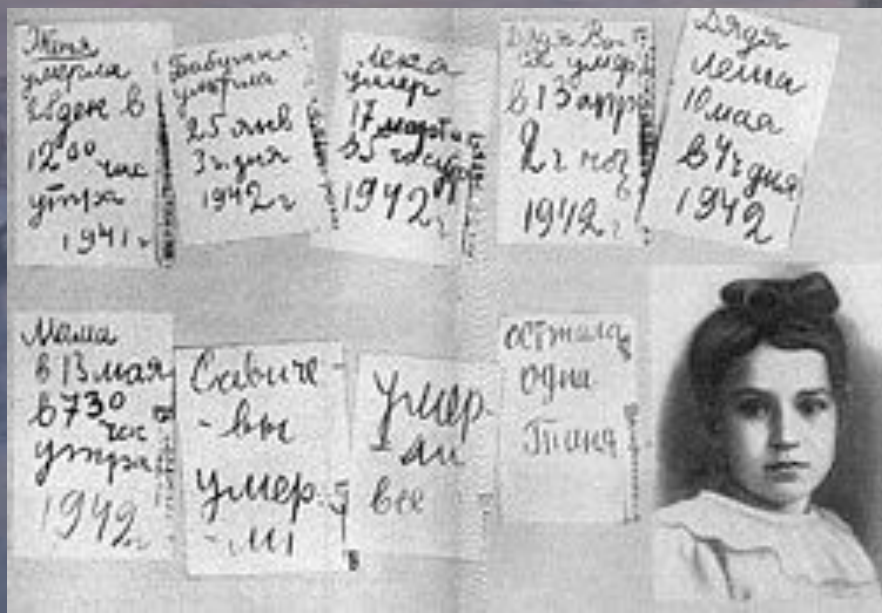 Женя
умерла
28 дек в
12 00 час
утра
1941 г
Бабушка
умерла
25 янв
3 ч. дня
1942 г
Лека
умер
17 марта
в 5 час утр
1942 г
Дядя Вася
умер
в 13 апр
2 ч ноч
1942 г
Дядя
Леша
10 мая
в 4 ч дня
1942
Мама
в 13 мая
в 730
час
утра
1942 г
Савиче
-вы
умер
-ли
умер
-ли
все
осталась
одна
Таня